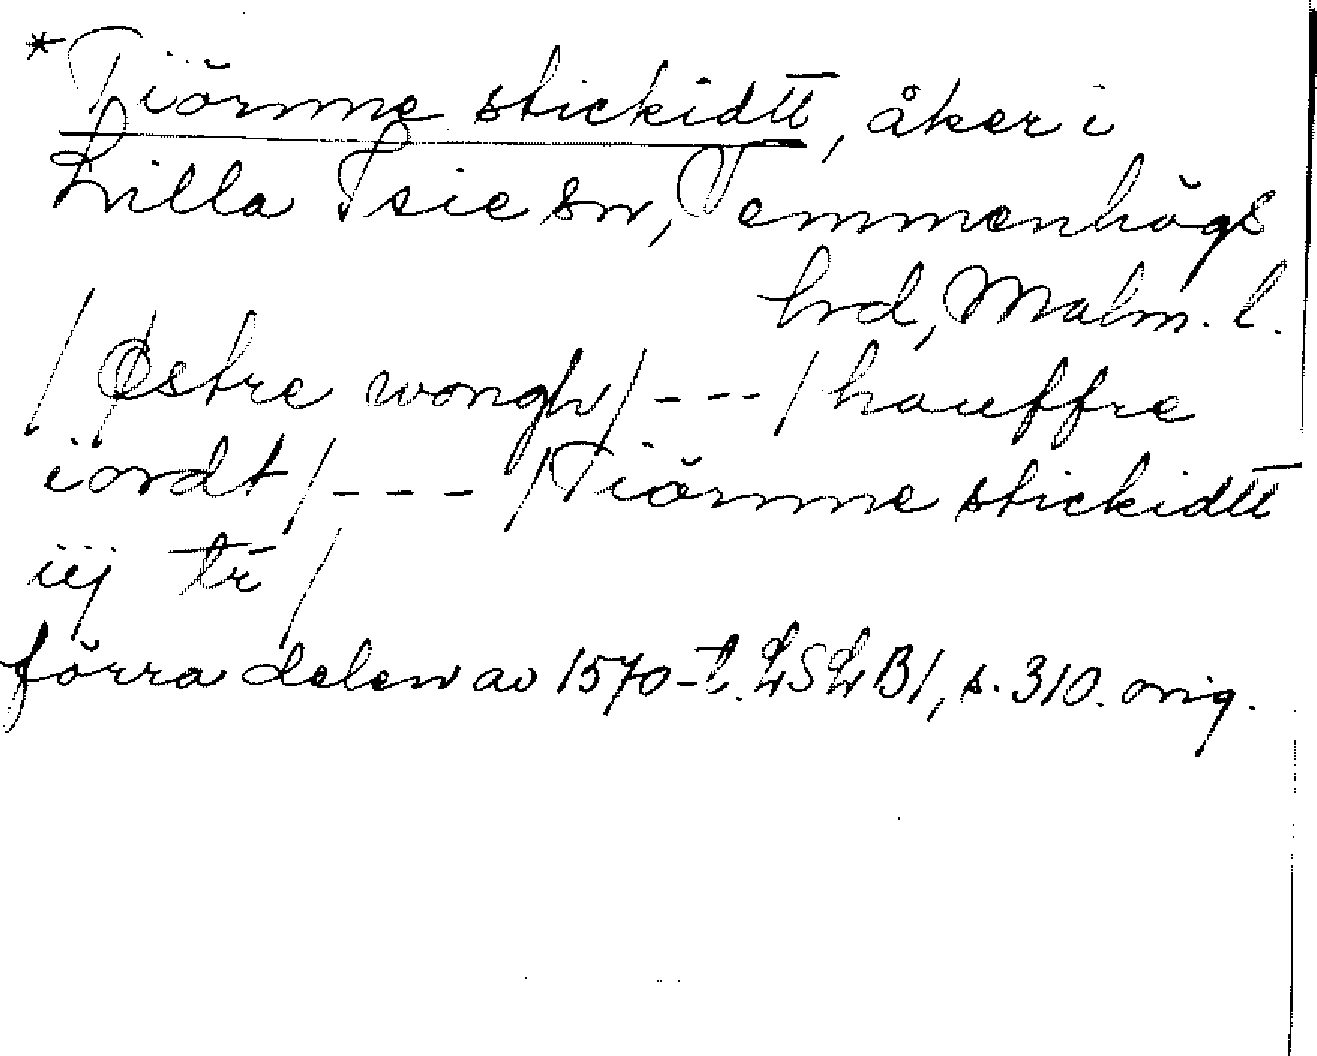 *Tiörnne stickidtt, åker i
Lilla Isie sn, Vemmenhögs
hrd, Malm. l.
/Østre wongh/---/hauffre
iordt/---/Tiörnne stickidtt
iij tr̄/
förra delen av 1570-t. LSLB1, s. 310. orig.